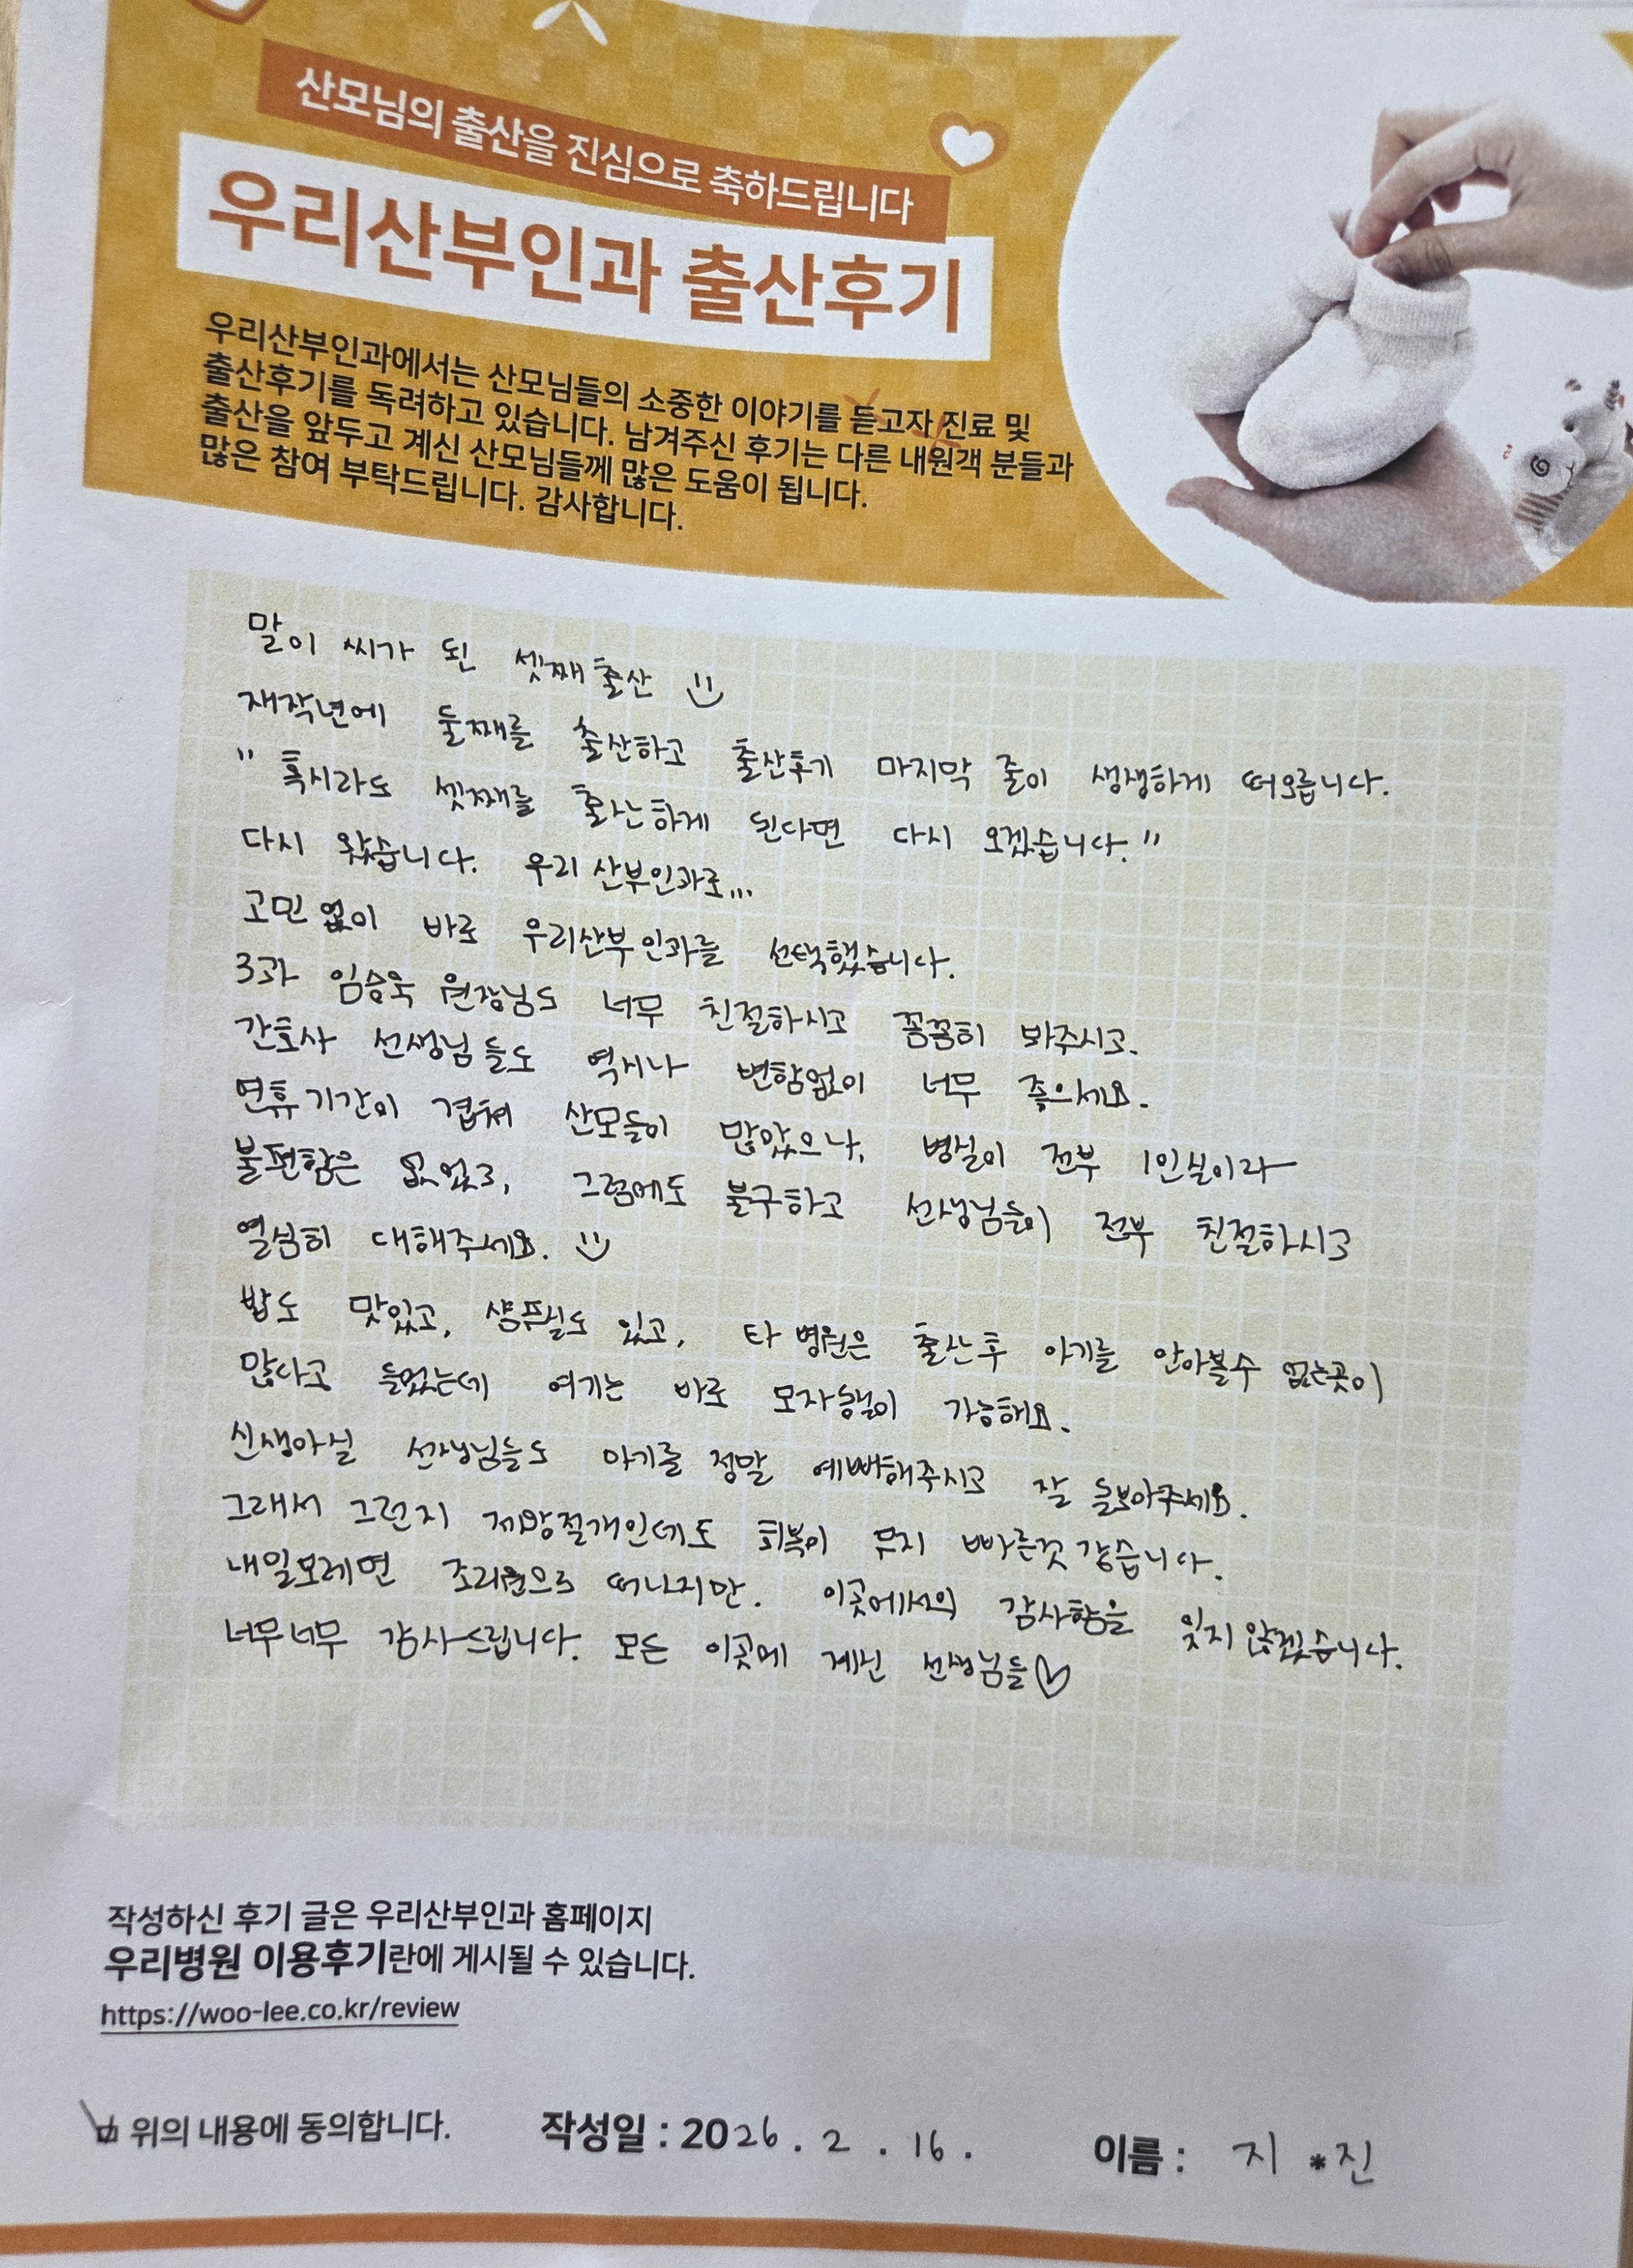 산모님의 출산을 진심으로 축하드립니다
우리산부인과 출산후기
우리산부인과에서는 산모님들의 소중한 이야기를 듣고자 진료 및
출산후기를 독려하고 있습니다. 남겨주신 후기는 다른 내원객 분들과
출산을 앞두고 계신 산모님들께 많은 도움이 됩니다.
많은 참여 부탁드립니다. 감사합니다.
말이 씨가 된 셋째 출산
재작년에 둘째를 출산하고 출산후기 마지막 줄이 생생하게 떠오릅니다.
" 혹시라도 셋째를 출산하게 된다면 다시 오겠습니다. "
다시 왔습니다. 우리 산부인과로...
고민 없이 바로 우리산부인과를 선택했습니다.
3과 임승욱 원장님도 너무 친절하시고 꼼꼼히 봐주시고.
간호사 선생님들도 역시나 변함없이 너무 좋으세요.
연휴기간이 겹쳐 산모들이 많았으나, 병실이 전부 1인실이라
불편함은 없었고, 그럼에도 불구하고 선생님들이 전부 친절하시고
열심히 대해주세요.
밥도 맛있고, 샴푸실도 있고, 타 병원은 출산후 아기를 안아볼수 없는곳이
많다고 들었는데 여기는 바로 모자동실이 가능해요.
신생아실 선생님들도 아기를 정말 예뻐해주시고 잘 돌보아주세요.
그래서 그런지 제왕절개인데도 회복이 무지 빠른것 같습니다.
내일모레면 조리원으로 떠나지만. 이곳에서의 감사함을 잊지 않겠습니다.
너무너무 감사드립니다. 모든 이곳에 계신 선생님들♡
작성하신 후기 글은 우리산부인과 홈페이지
우리병원 이용후기란에 게시될 수 있습니다.
https://woo-lee.co.kr/review
위의 내용에 동의합니다. 작성일 : 2026 . 2 . 16 . 이름 : 지 *진